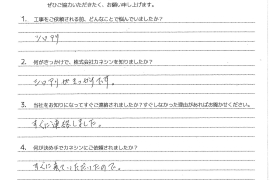 ぜひご協力いただきたく、お願い申し上げます。
1. 工事をご依頼される前、どんなことで悩んでいましたか?
シロアリ
2. 何がきっかけで、株式会社カネシンを知りましたか?
シロアリ
3. 当社をお知りになってすぐご連絡されましたか?すぐしなかった理由があればお聞かせください。
すぐに連絡しました。
4. 何が決め手でカネシンにご依頼されましたか?
すぐに来ていただいたので。